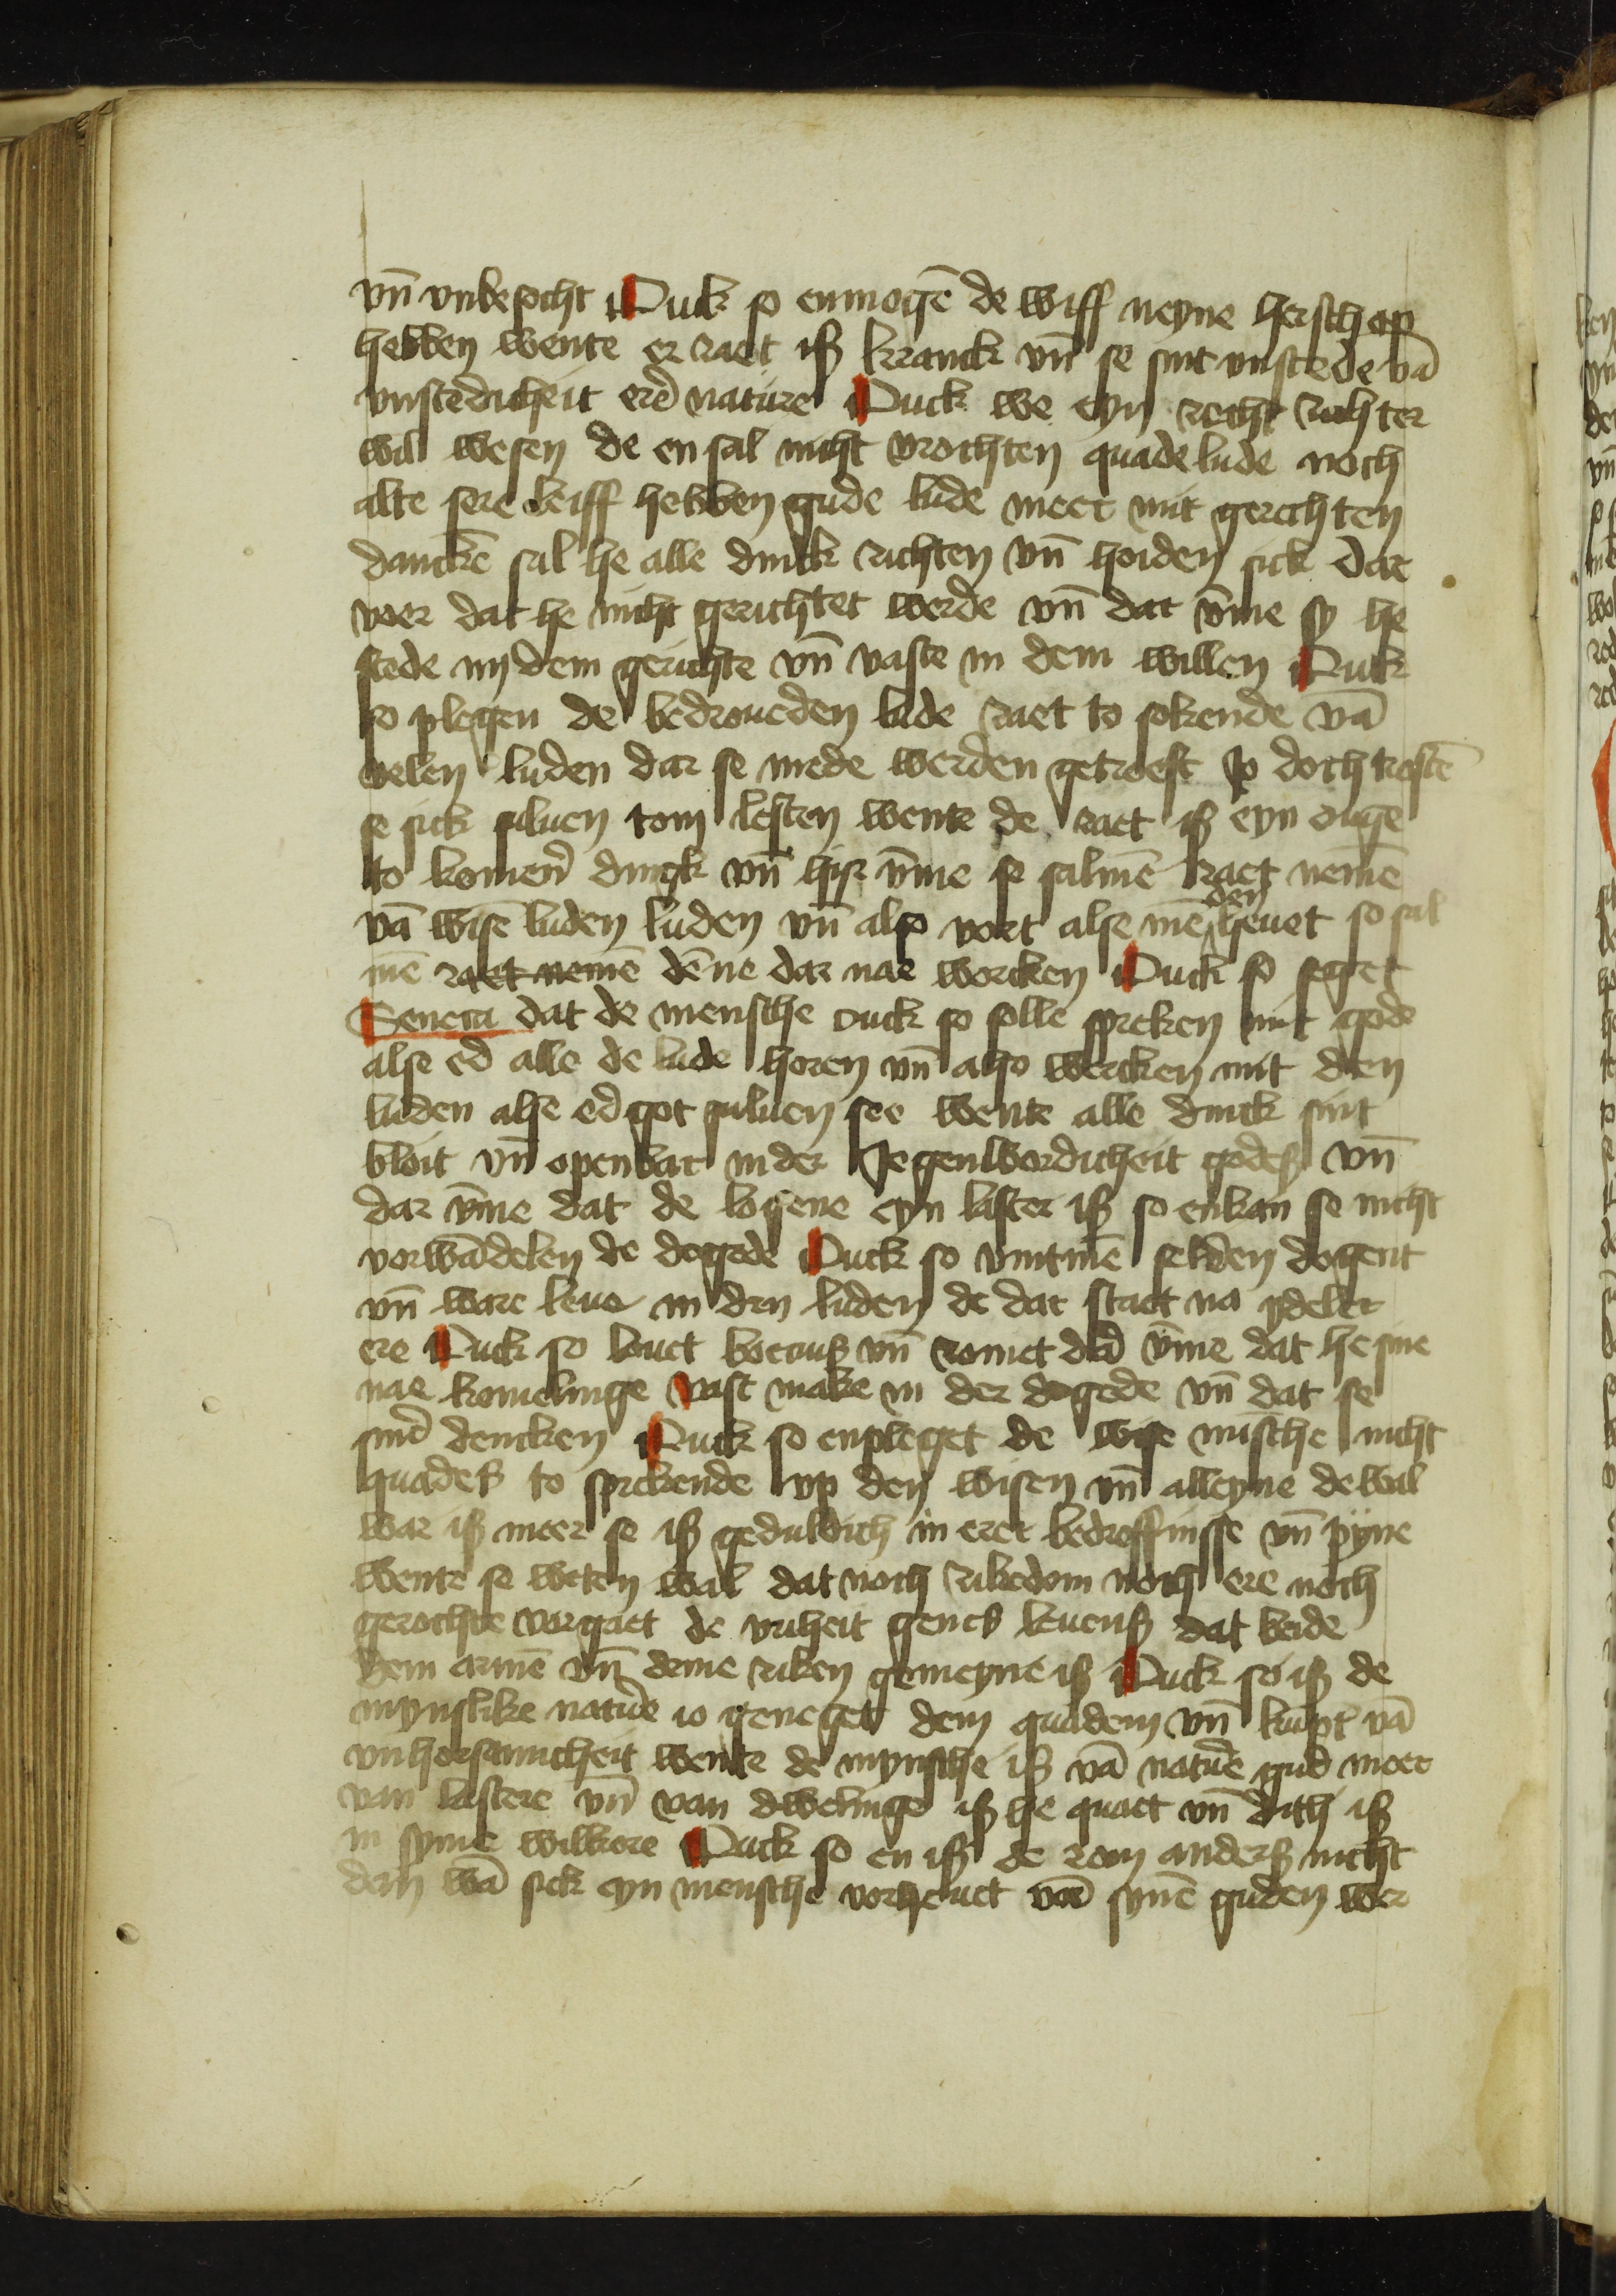 vn̄ vnbesocht Ouck so enmogē de wiff neyne herschop
hebben wente er raet iß kranck vn̄ se sint vnstede vā
vnstedicheit erē nature Ouck we eyn recht richter
wil wesen de en sal nicht vrochten quade lude noch
alte sere leiff hebben gude lude meer mit gerechten
danckē sal he alle dinck richten vn̄ hoiden sick dar
voer dat he nicht gerichtet werde vn̄ dar v̄me sy he
stede in dem gerichte vn̄ vaste in dem willen Ouck
so plegen de bedroueden lude raet to sokende vā
velen luden dar se mede werden getroest Jo doch trostē
se sick suluen tom lesten wente de raet iß eyn ouge
to komen̄ dingk vn̄ hir v̄me se salmē raet nemē
vā wisē luden luden vn̄ also vort alse mē den heuet so sal
mē raet nemē dēne dar nae worcken Ouck so seget
Seneca dat de mensche ouck so solle spreken mit gode
alse ed alle de lude horen vn̄ also wercken mit den
luden alse ed got suluen see wente alle dinck sint
bloit vn̄ openbar in der Jegenwordicheit godeß vn̄
dar v̄me dat de logene eyn laster iß so enkan se nicht
vorwādelen de dogede Ouck so vintmē selden dogent
vn̄ ware leue in den luden de dar staet na ydeler
ere Ouck so louet boecius vn̄ romet dar v̄me dat he sine
nae komelinge vast make in der dogede vn̄ dat se
sin̄ dencken Ouck so enpleget de wise mīsche nicht
quades to sprekende vp den wisen vn̄ alleyne de wal
war iß meer se iß geduldich in erer bedroffnisse vn̄ pyne
wente se weten wal dat noch rikedom noch ere noch
gerochte vorgaet de vriheit genes leuens dat beide
dem armē vn̄ deme riken gemeyne iß Ouck so iß de
mynslike nature io geneget dem quadem vn̄ kūpt vā
vnhorsamicheit wente de mynsche iß vā nature gud meer
van lastere vn̄ van dwelinge iß he quaet vn̄ dith iß
in syme wilkore Ouck so en iß de rom anders nicht
dan wā sick eyn mensche vorheuet vā synē guden wer